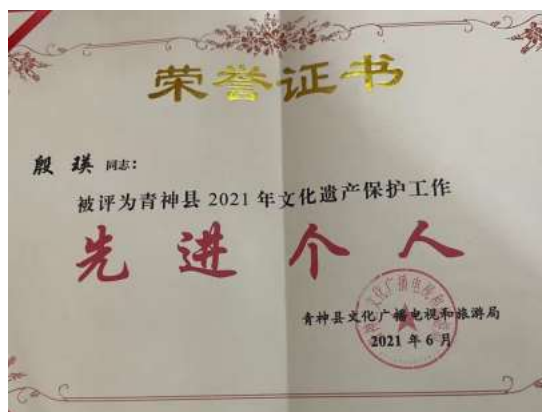 荣誉证书
殷 瑛 同志:
被评为青神县 2021 年文化遗产保护工作
先进个人
青神县文化广播电视和旅游局
2021 年 6 月